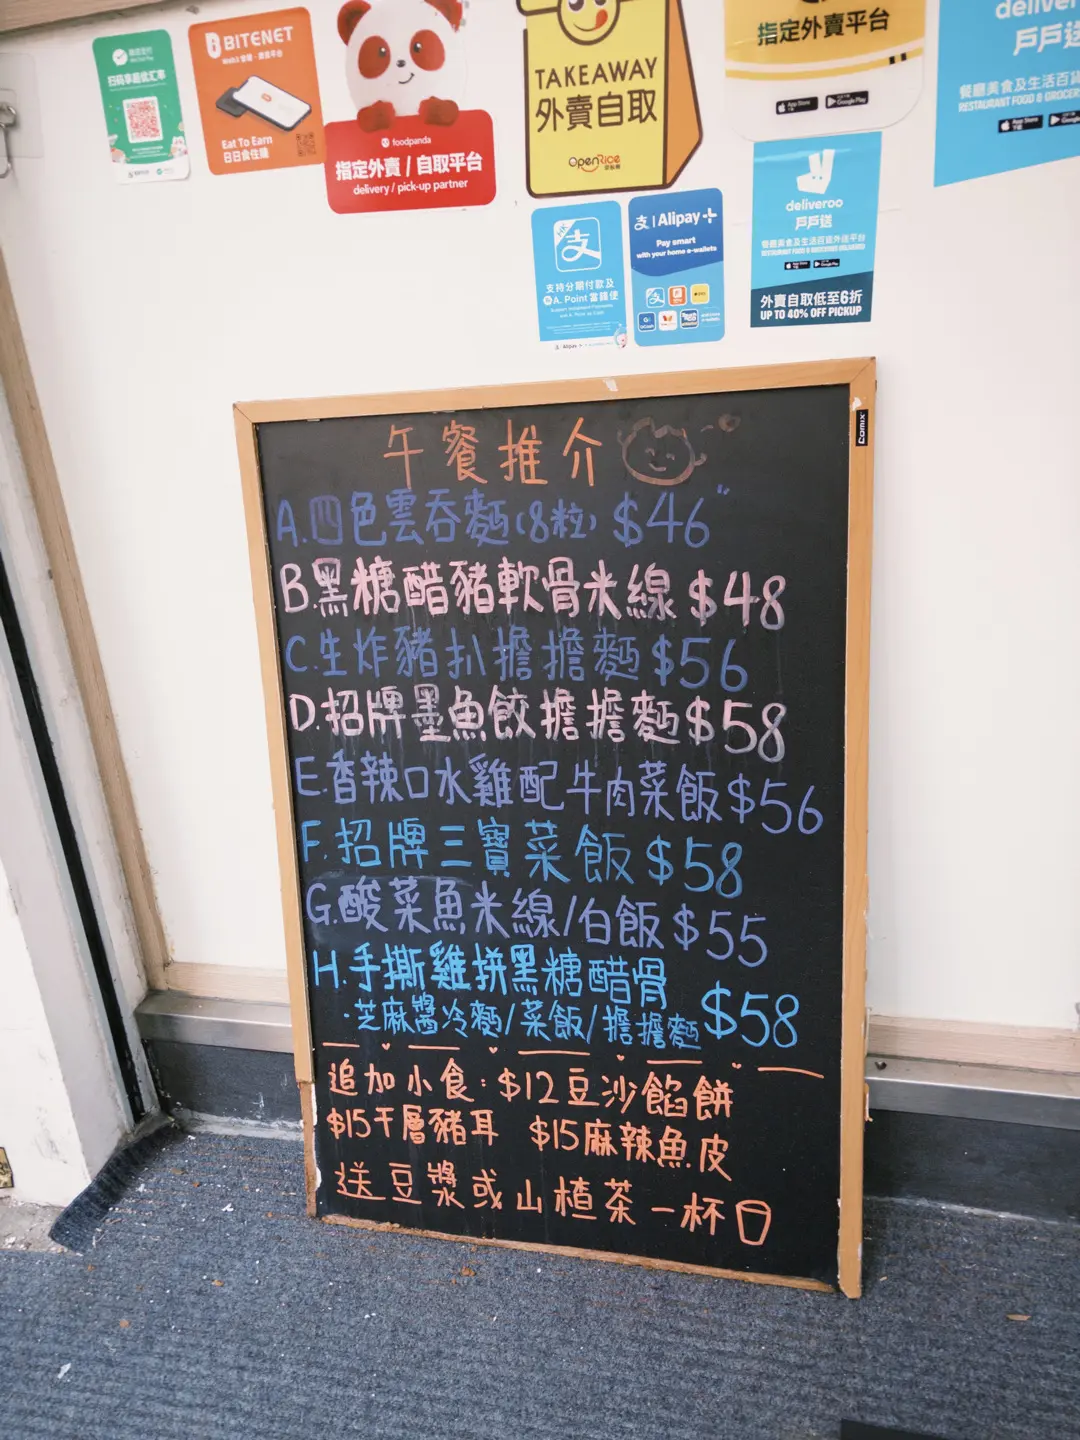 扫码享超优汇率
BITENET
Eat To Earn
日日食住賺
foodpanda
指定外賣 / 自取平台
delivery / pick-up partner
TAKEAWAY
外賣自取
OpenRice
指定外賣平台
App Store
Google Play
deliver
戶戶送
餐廳美食及生活百貨
RESTAURANT FOOD & GROCER
App Store
支
支持分期付款及
A. Point 當錢使
Alipay
支 | Alipay+
Pay smart
with your home e-wallets
deliveroo
戶戶送
餐廳美食及生活百貨外送平台
RESTAURANT FOOD & GROCERIES DELIVERED
App Store
Google Play
外賣自取低至6折
UP TO 40% OFF PICKUP
comix
午餐推介
A.四色雲吞麵(8粒) $46
B.黑糖醋豬軟骨米線 $48
C.生炸豬扒擔擔麵 $56
D.招牌墨魚餃擔擔麵 $58
E.香辣口水雞配牛肉菜飯 $56
F.招牌三寶菜飯 $58
G.酸菜魚米線/白飯 $55
H.手撕雞拼黑糖醋骨
·芝麻醬冷麵/菜飯/擔擔麵 $58
追加小食: $12豆沙餡餅
$15千層豬耳 $15麻辣魚皮
送豆漿或山楂茶一杯